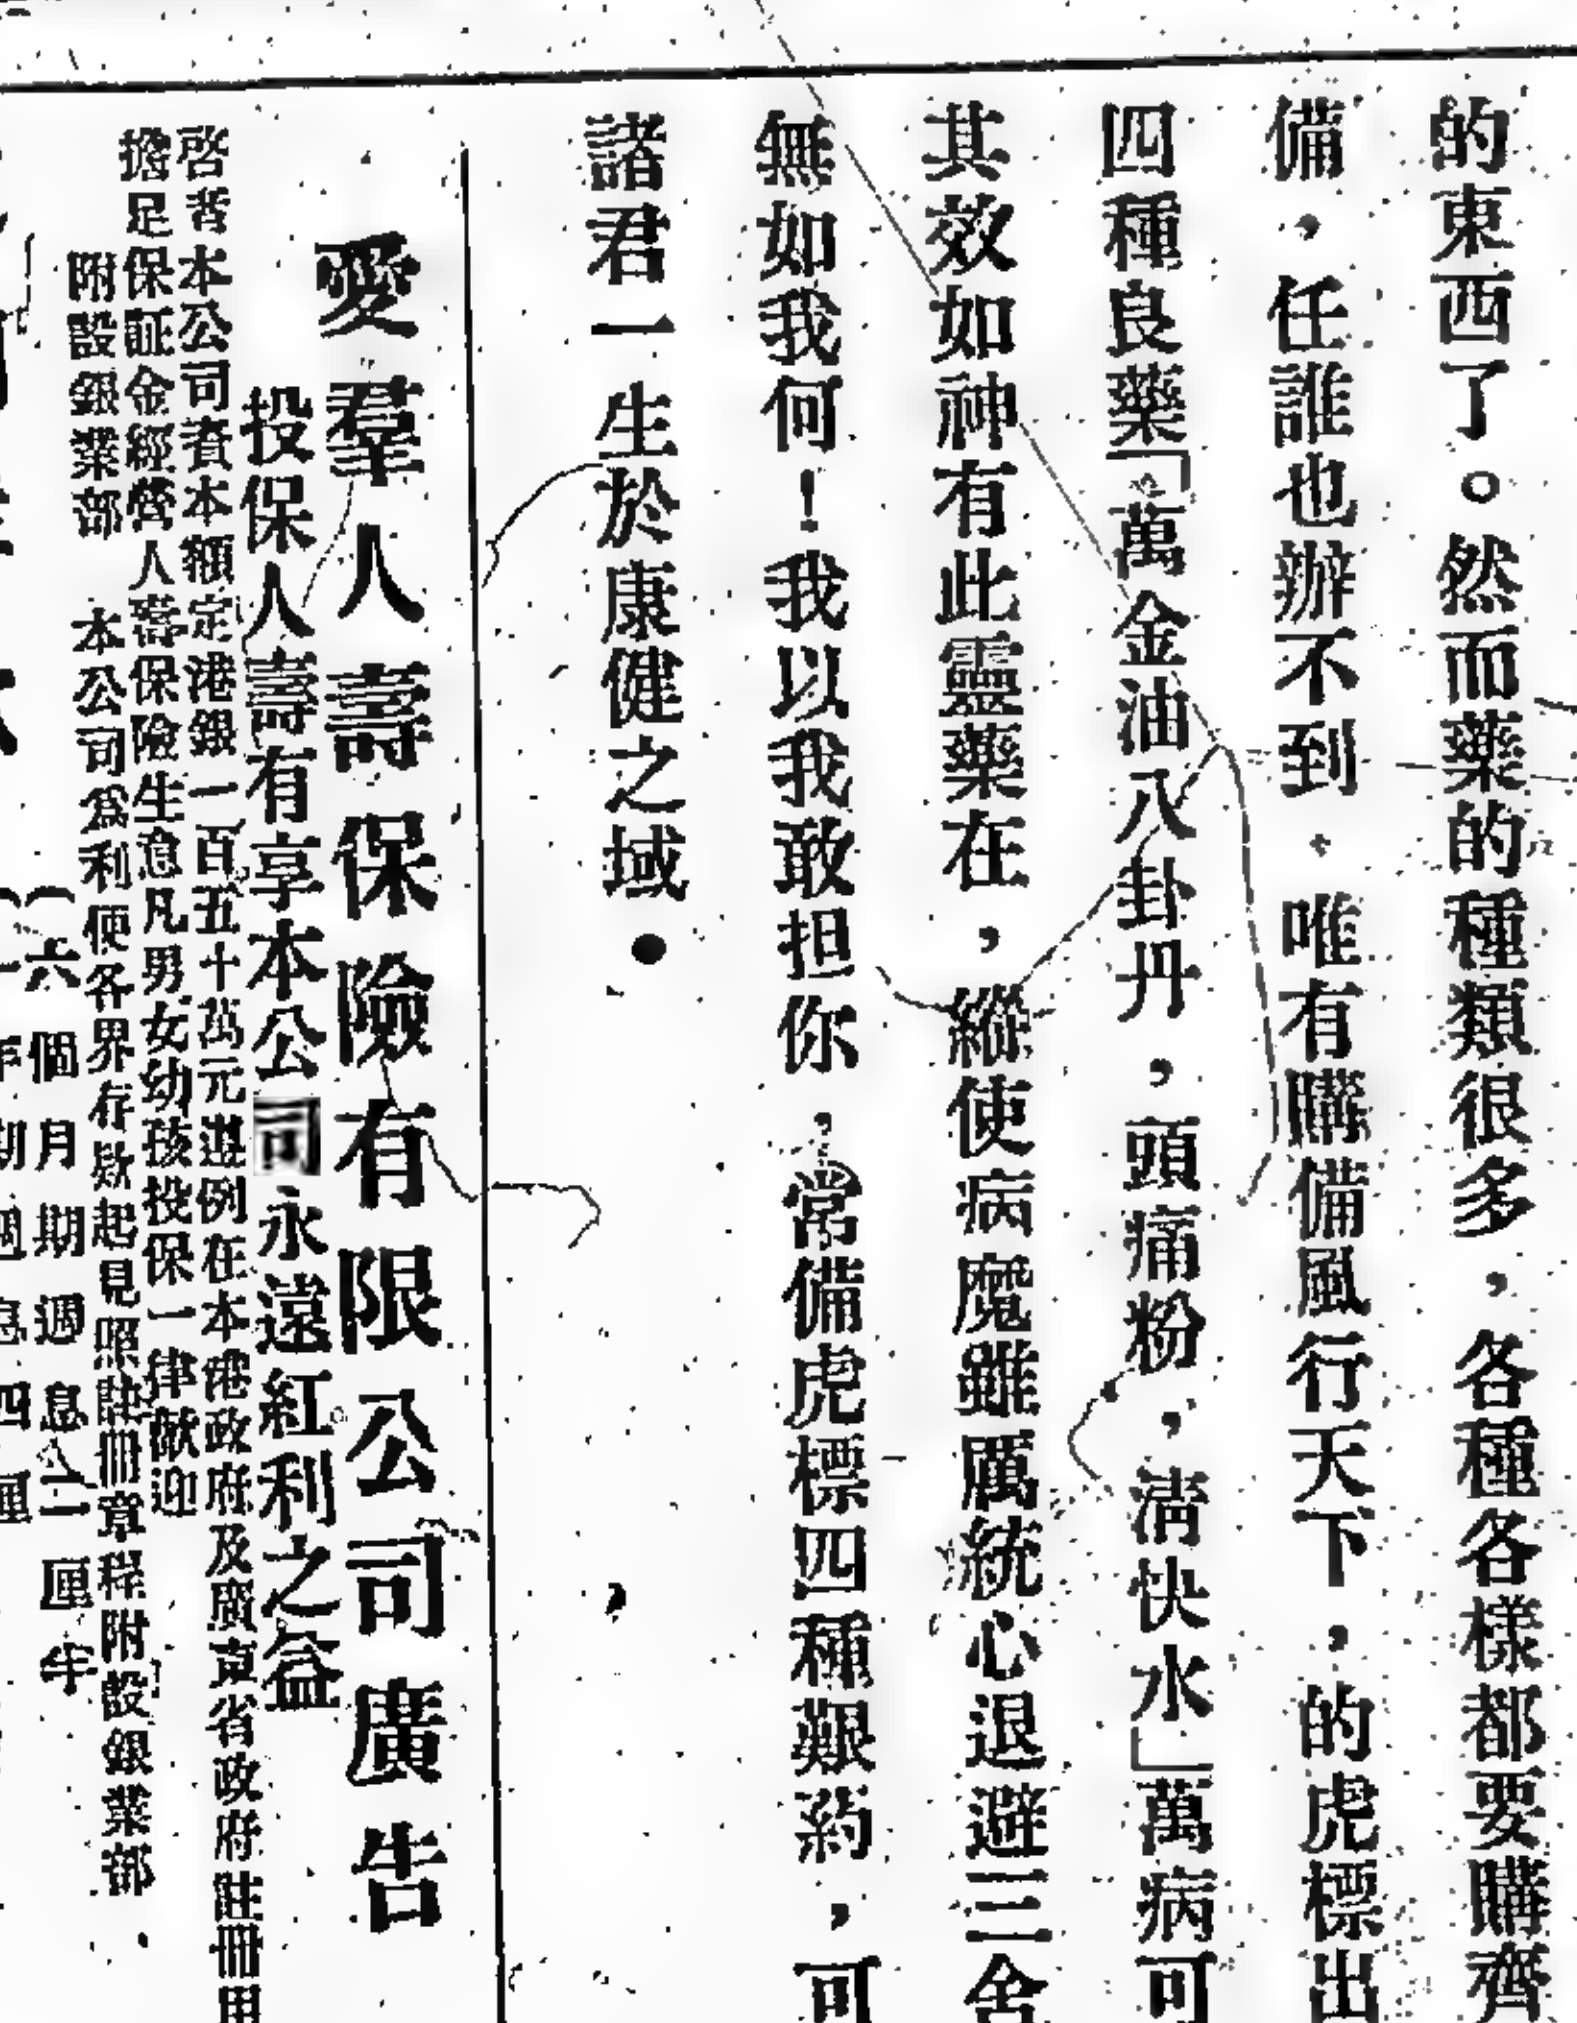 的東西了。然而藥的種類很多，各種各樣都要購齊
備，任誰也辦不到，唯有購備風行天下，的虎標出
四種良藥「萬金油八卦丹，頭痛粉，清快水」萬病可
其效如神有此靈藥在，縱使病魔雖厲統心退避三舍
無如我何！我以我敢担你，常備虎標四種艱药，可
諸君一生於康健之域●
愛羣人壽保險有限公司廣告
投保人壽有享本公司永遠紅利之益
啓者本公司資本額定港銀一百五十萬元遵例在本港政府及廣東省政府註冊用
擔足保証金經營人壽保險生意凡男女幼孩投保一律歡迎
附設銀業部 本公司爲利便各界存欵起見照註冊章程附設銀業部．
（六個月期週息二厘半
年期週息四厘